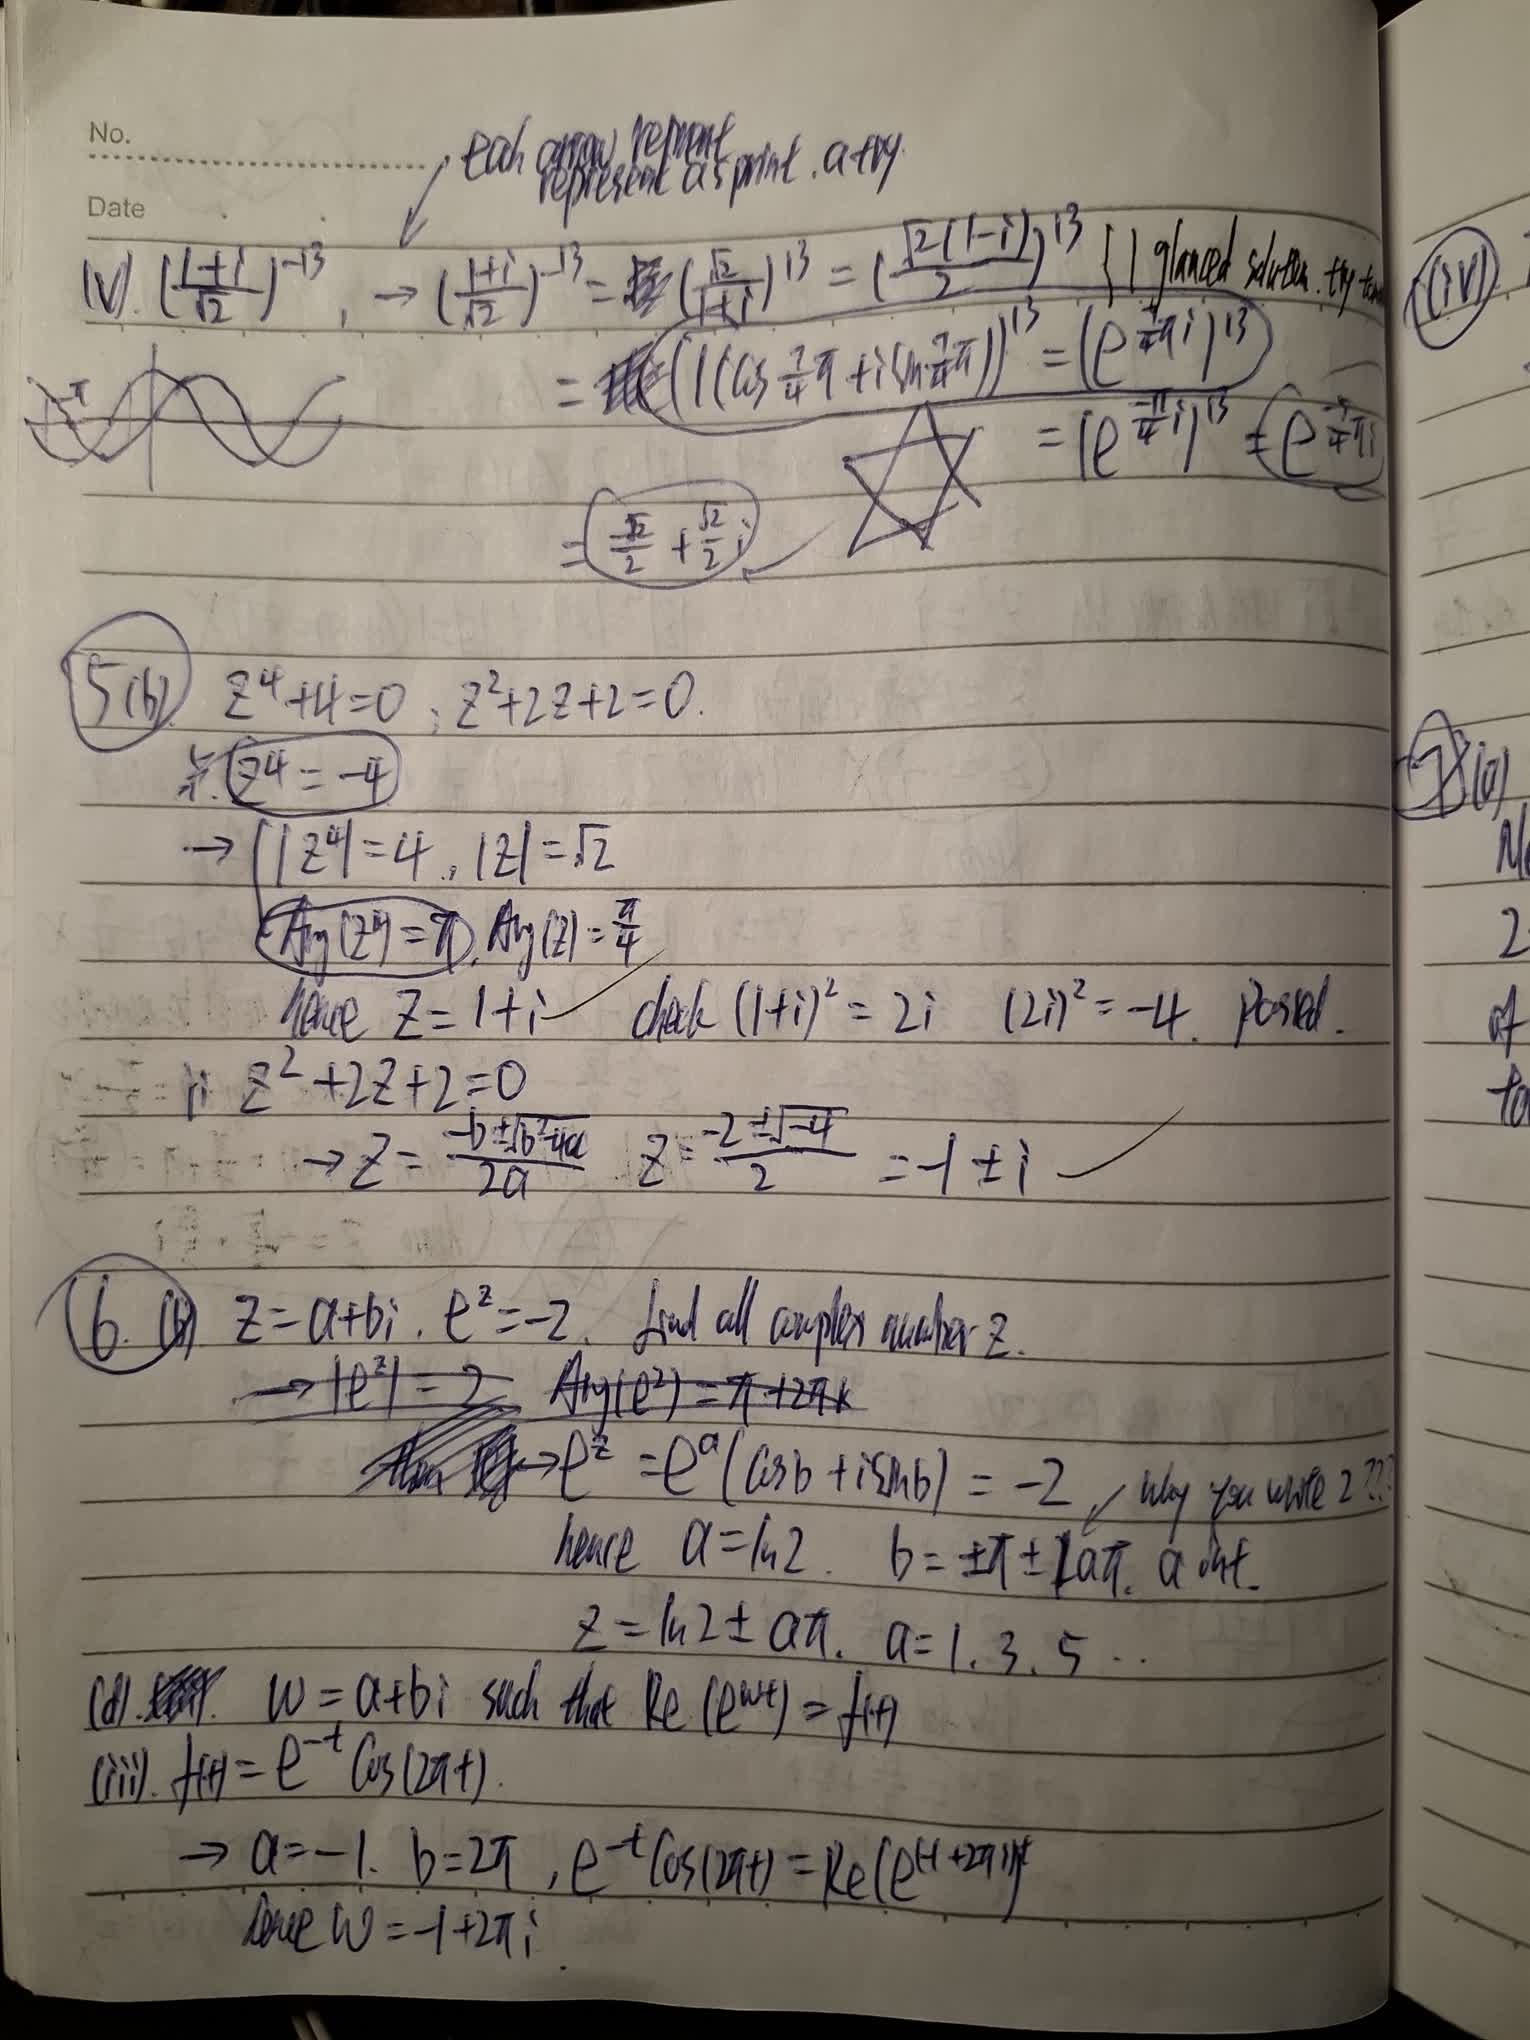 No.
Date
each arrow represent
represent a sprint. a try.
(V). (\frac{1+i}{\sqrt{2}})^{-13}, → (\frac{1+i}{\sqrt{2}})^{-13} = (\frac{\sqrt{2}}{1+i})^{13} = (\frac{\sqrt{2}(1-i)}{2})^{13} { I glanced solution. try
= (1(cos \frac{7}{4}π + i sin \frac{7}{4}π))^{13} = (e^{\frac{7}{4}πi})^{13}
-π
= (e^{\frac{-π}{4}i})^{13} = e^{\frac{-5}{4}πi}
= \frac{-\sqrt{2}}{2} + \frac{\sqrt{2}}{2}i
5(b). z^4+4=0, z^2+2z+2=0.
i. z^4 = -4
→ |z^4| = 4, |z| = \sqrt{2}
Arg(z^4) = π, Arg(z) = \frac{π}{4}
hence z = 1+i check (1+i)^2 = 2i (2i)^2 = -4. passed.
ii z^2+2z+2=0
→ z = \frac{-b±\sqrt{b^2-4ac}}{2a} z = \frac{-2±\sqrt{-4}}{2} = -1 ± i
6. (b) z = a+bi. e^z = -2. find all complex number z.
→ |e^z| = 2 Arg(e^z) = π+2πk
then → e^z = e^a (cos b + i sin b) = -2 why you write 2???
hence a = ln2. b = ±π ± 2aπ. a int.
z = ln2 ± aπ. a = 1. 3. 5 ..
(d). w = a+bi such that Re(e^{wt}) = f(t)
(iii). f(t) = e^{-t} cos(2πt).
→ a = -1. b = 2π, e^{-t} cos(2πt) = Re(e^{(-1+2πi)t}
hence w = -1+2πi
(iv)
7 (a)
2
of
to